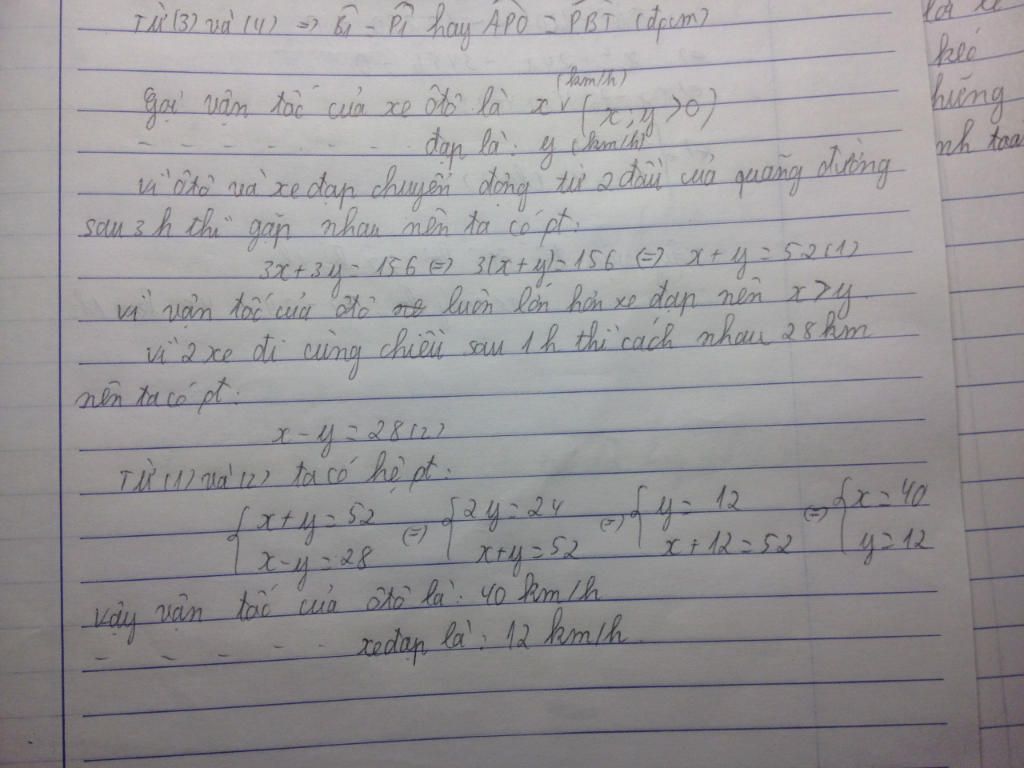 Từ (3) và (4) => B̂1 = P̂1 hay APO = PBT (đpcm)
Gọi vận tốc của xe ôtô là x (km/h) (x; y > 0)
- - - - - - - đạp là: y (km/h)
vì ôtô và xe đạp chuyển động từ 2 đầu của quãng đường
sau 3h thì gặp nhau nên ta có pt:
3x + 3y = 156 (=) 3(x + y) = 156 (=) x + y = 52 (1)
vì vận tốc của ôtô luôn lớn hơn xe đạp nên x > y
vì 2 xe đi cùng chiều sau 1h thì cách nhau 28km
nên ta có pt:
x - y = 28 (2)
Từ (1) và (2) ta có hệ pt:
{ x + y = 52 (=) { 2y = 24 (=) { y = 12 (=) { x = 40
x - y = 28 x + y = 52 x + 12 = 52 y = 12
vậy vận tốc của ôtô là: 40 km/h
- - - - - xe đạp là: 12 km/h
hiêng